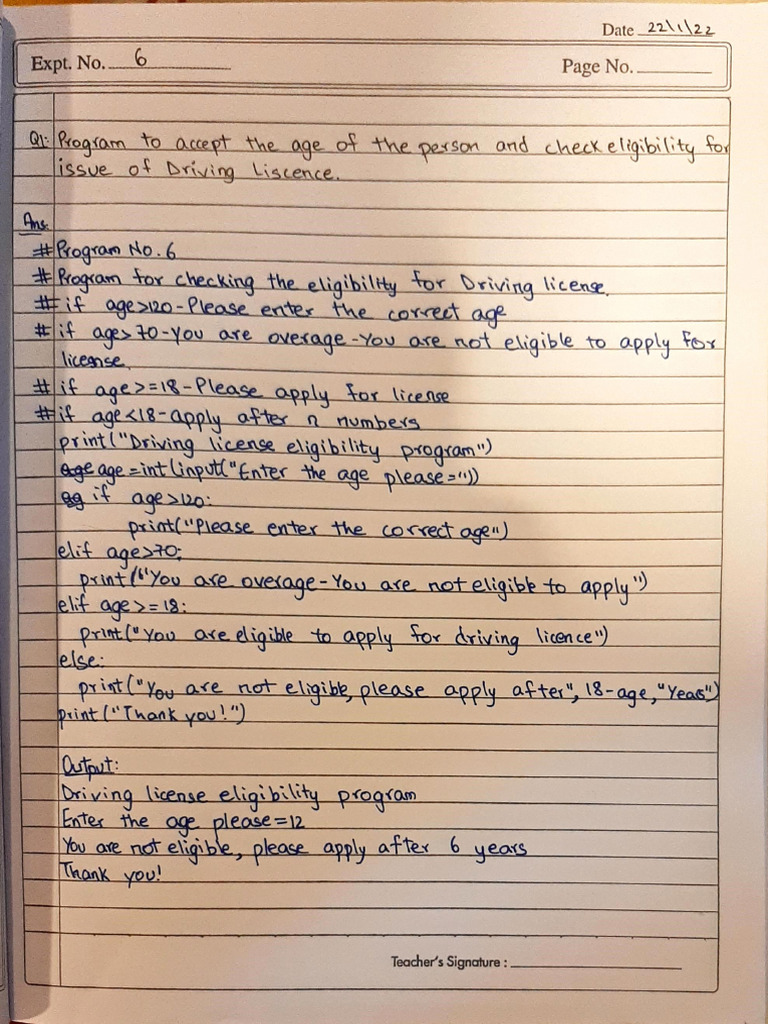 Date 22/1/22
Expt. No. 6
Page No.
Q1: Program to accept the age of the person and check eligibility for
issue of Driving Liscence.
Ans.
# Program No. 6
# Program for checking the eligibility for Driving license.
# if age>120-Please enter the correct age
# if age>70-You are overage-You are not eligible to apply for
license.
# if age>=18-Please apply for license
# if age<18-apply after n numbers
print("Driving license eligibility program")
age=int(input("Enter the age please="))
if age>120:
print("Please enter the correct age")
elif age>70:
print("You are overage-You are not eligible to apply")
elif age>=18:
print("You are eligible to apply for driving licence")
else:
print("You are not eligible, please apply after", 18-age,"Years")
print("Thank you!")
Output:
Driving license eligibility program
Enter the age please=12
You are not eligible, please apply after 6 years
Thank you!
Teacher's Signature :